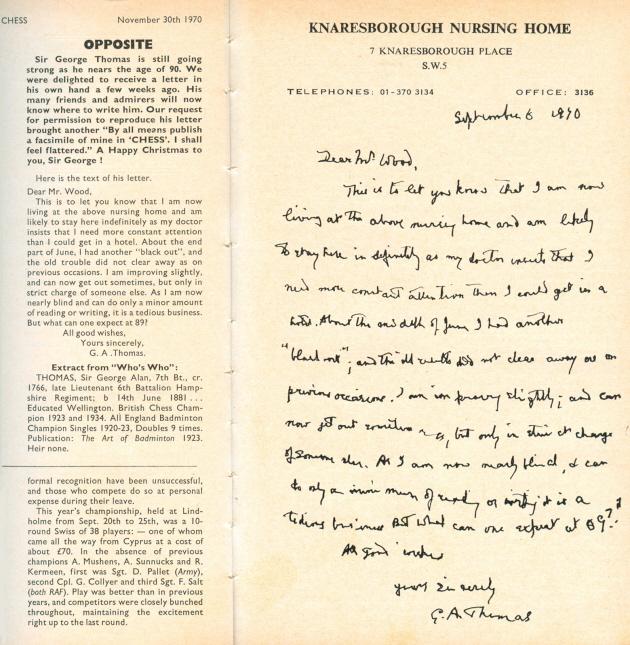 CHESS
November 30th 1970
OPPOSITE
Sir George Thomas is still going
strong as he nears the age of 90. We
were delighted to receive a letter in
his own hand a few weeks ago. His
many friends and admirers will now
know where to write him. Our request
for permission to reproduce his letter
brought another “By all means publish
a facsimile of mine in ‘CHESS’. I shall
feel flattered.” A Happy Christmas to
you, Sir George !
Here is the text of his letter.
Dear Mr. Wood,
This is to let you know that I am now
living at the above nursing home and am
likely to stay here indefinitely as my doctor
insists that I need more constant attention
than I could get in a hotel. About the end
part of June, I had another “black out”, and
the old trouble did not clear away as on
previous occasions. I am improving slightly,
and can now get out sometimes, but only in
strict charge of someone else. As I am now
nearly blind and can do only a minor amount
of reading or writing, it is a tedious business.
But what can one expect at 89?
All good wishes,
Yours sincerely,
G. A .Thomas.
Extract from “Who’s Who”:
THOMAS, Sir George Alan, 7th Bt., cr.
1766, late Lieutenant 6th Battalion Hamp-
shire Regiment; b 14th June 1881 . . .
Educated Wellington. British Chess Cham-
pion 1923 and 1934. All England Badminton
Champion Singles 1920-23, Doubles 9 times.
Publication: The Art of Badminton 1923.
Heir none.
formal recognition have been unsuccessful,
and those who compete do so at personal
expense during their leave.
This year’s championship, held at Lind-
holme from Sept. 20th to 25th, was a 10-
round Swiss of 38 players: — one of whom
came all the way from Cyprus at a cost of
about £70. In the absence of previous
champions A. Mushens, A. Sunnucks and R.
Kermeen, first was Sgt. D. Pallet (Army),
second Cpl. G. Collyer and third Sgt. F. Salt
(both RAF). Play was better than in previous
years, and competitors were closely bunched
throughout, maintaining the excitement
right up to the last round.
KNARESBOROUGH NURSING HOME
7 KNARESBOROUGH PLACE
S.W.5
TELEPHONES: 01-370 3134
OFFICE: 3136
September 6 1970
Dear Mr. Wood,
This is to let you know that I am now
living at the above nursing home and am likely
to stay here indefinitely as my doctor insists that I
need more constant attention than I could get in a
hotel. About the end of June I had another
"black out"; and the old trouble did not clear away as on
previous occasions. I am improving slightly; and can
now get out sometimes, but only in strict charge
of someone else. As I am now nearly blind, & can
do only a minimum of reading or writing it is a
tedious business But what can one expect at 89?
All good wishes
yours sincerely
G. A. Thomas